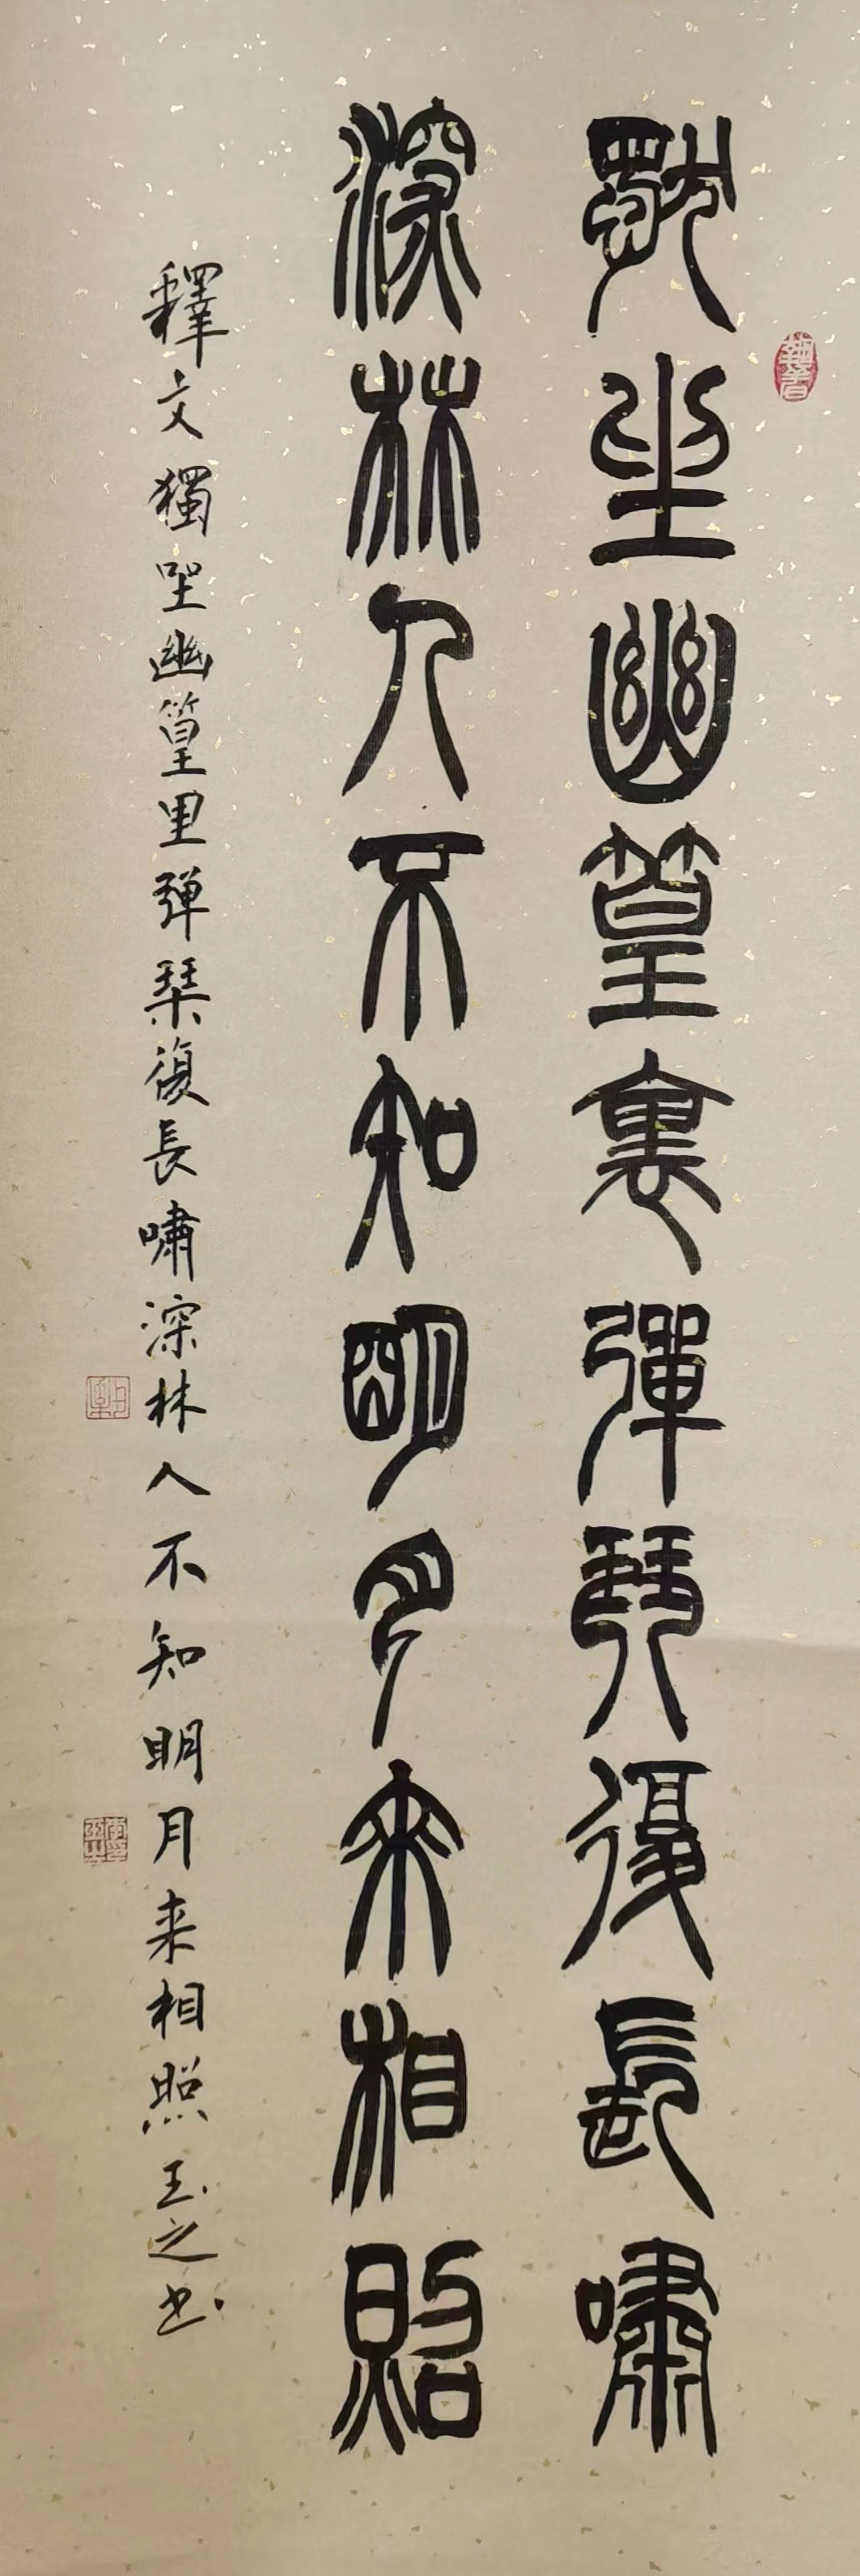 獨坐幽篁裏彈琴復長嘯
深林人不知明月來相照
釋文獨坐幽篁里弹琴復長嘯深林人不知明月来相照玉之书